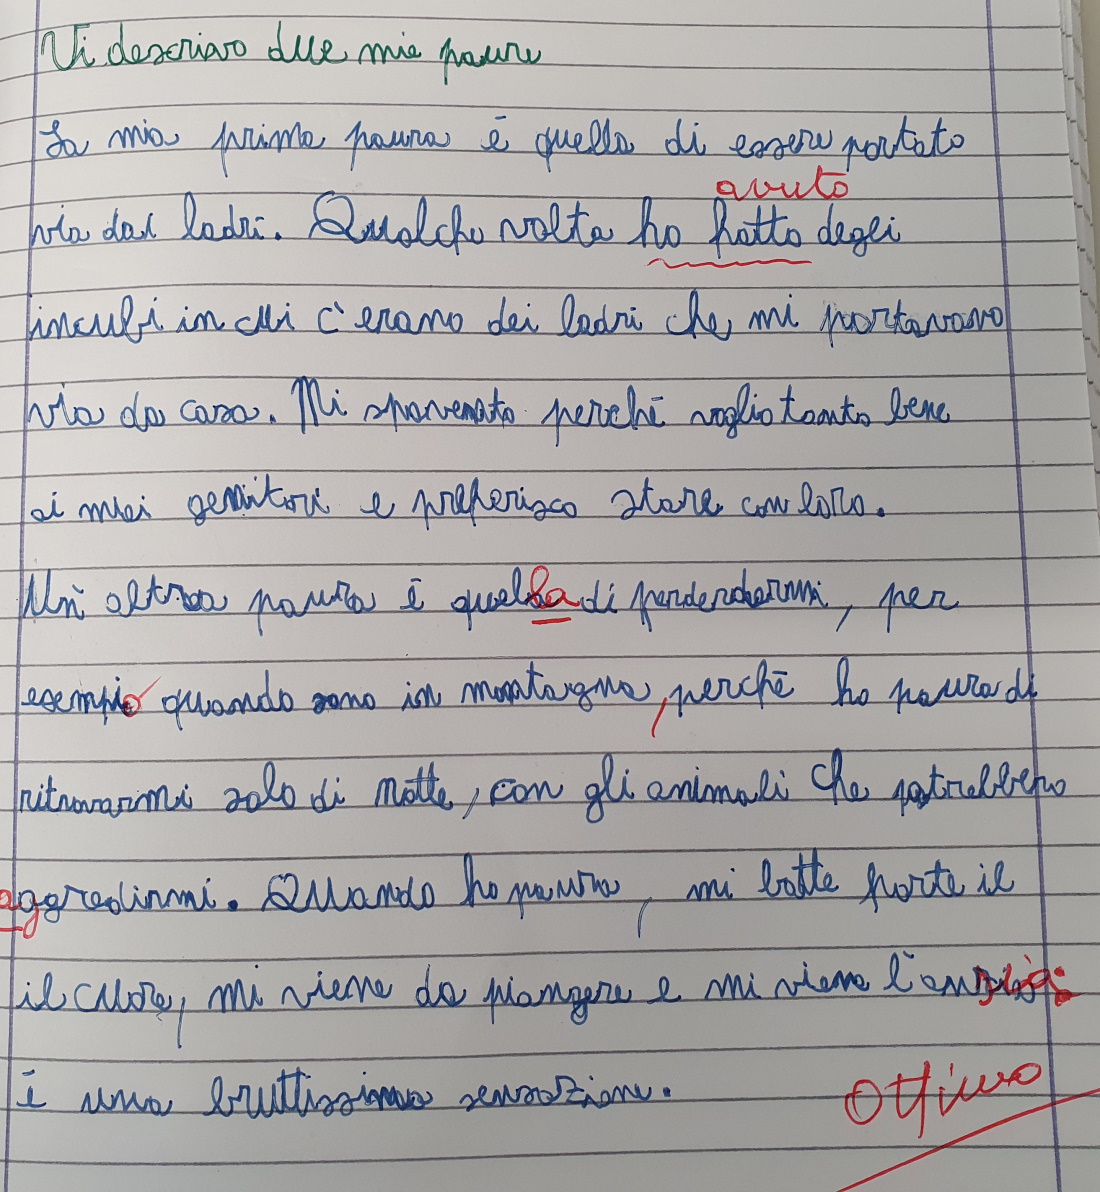 Vi descrivo due mie paure
La mia prima paura è quella di essere portato
avuto
via dai ladri. Qualche volta ho fatto degli
incubi in cui c'erano dei ladri che mi portavano
via da casa. Mi spavento perché voglio tanto bene
ai miei genitori e preferisco stare con loro.
Un'altra paura è quella di perdermi, per
esempio quando sono in montagna, perché ho paura di
ritrovarmi solo di notte, con gli animali che potrebbero
aggredirmi. Quando ho paura, mi batte forte il
il cuore, mi viene da piangere e mi viene l'ansia:
è una bruttissima sensazione.
Ottimo